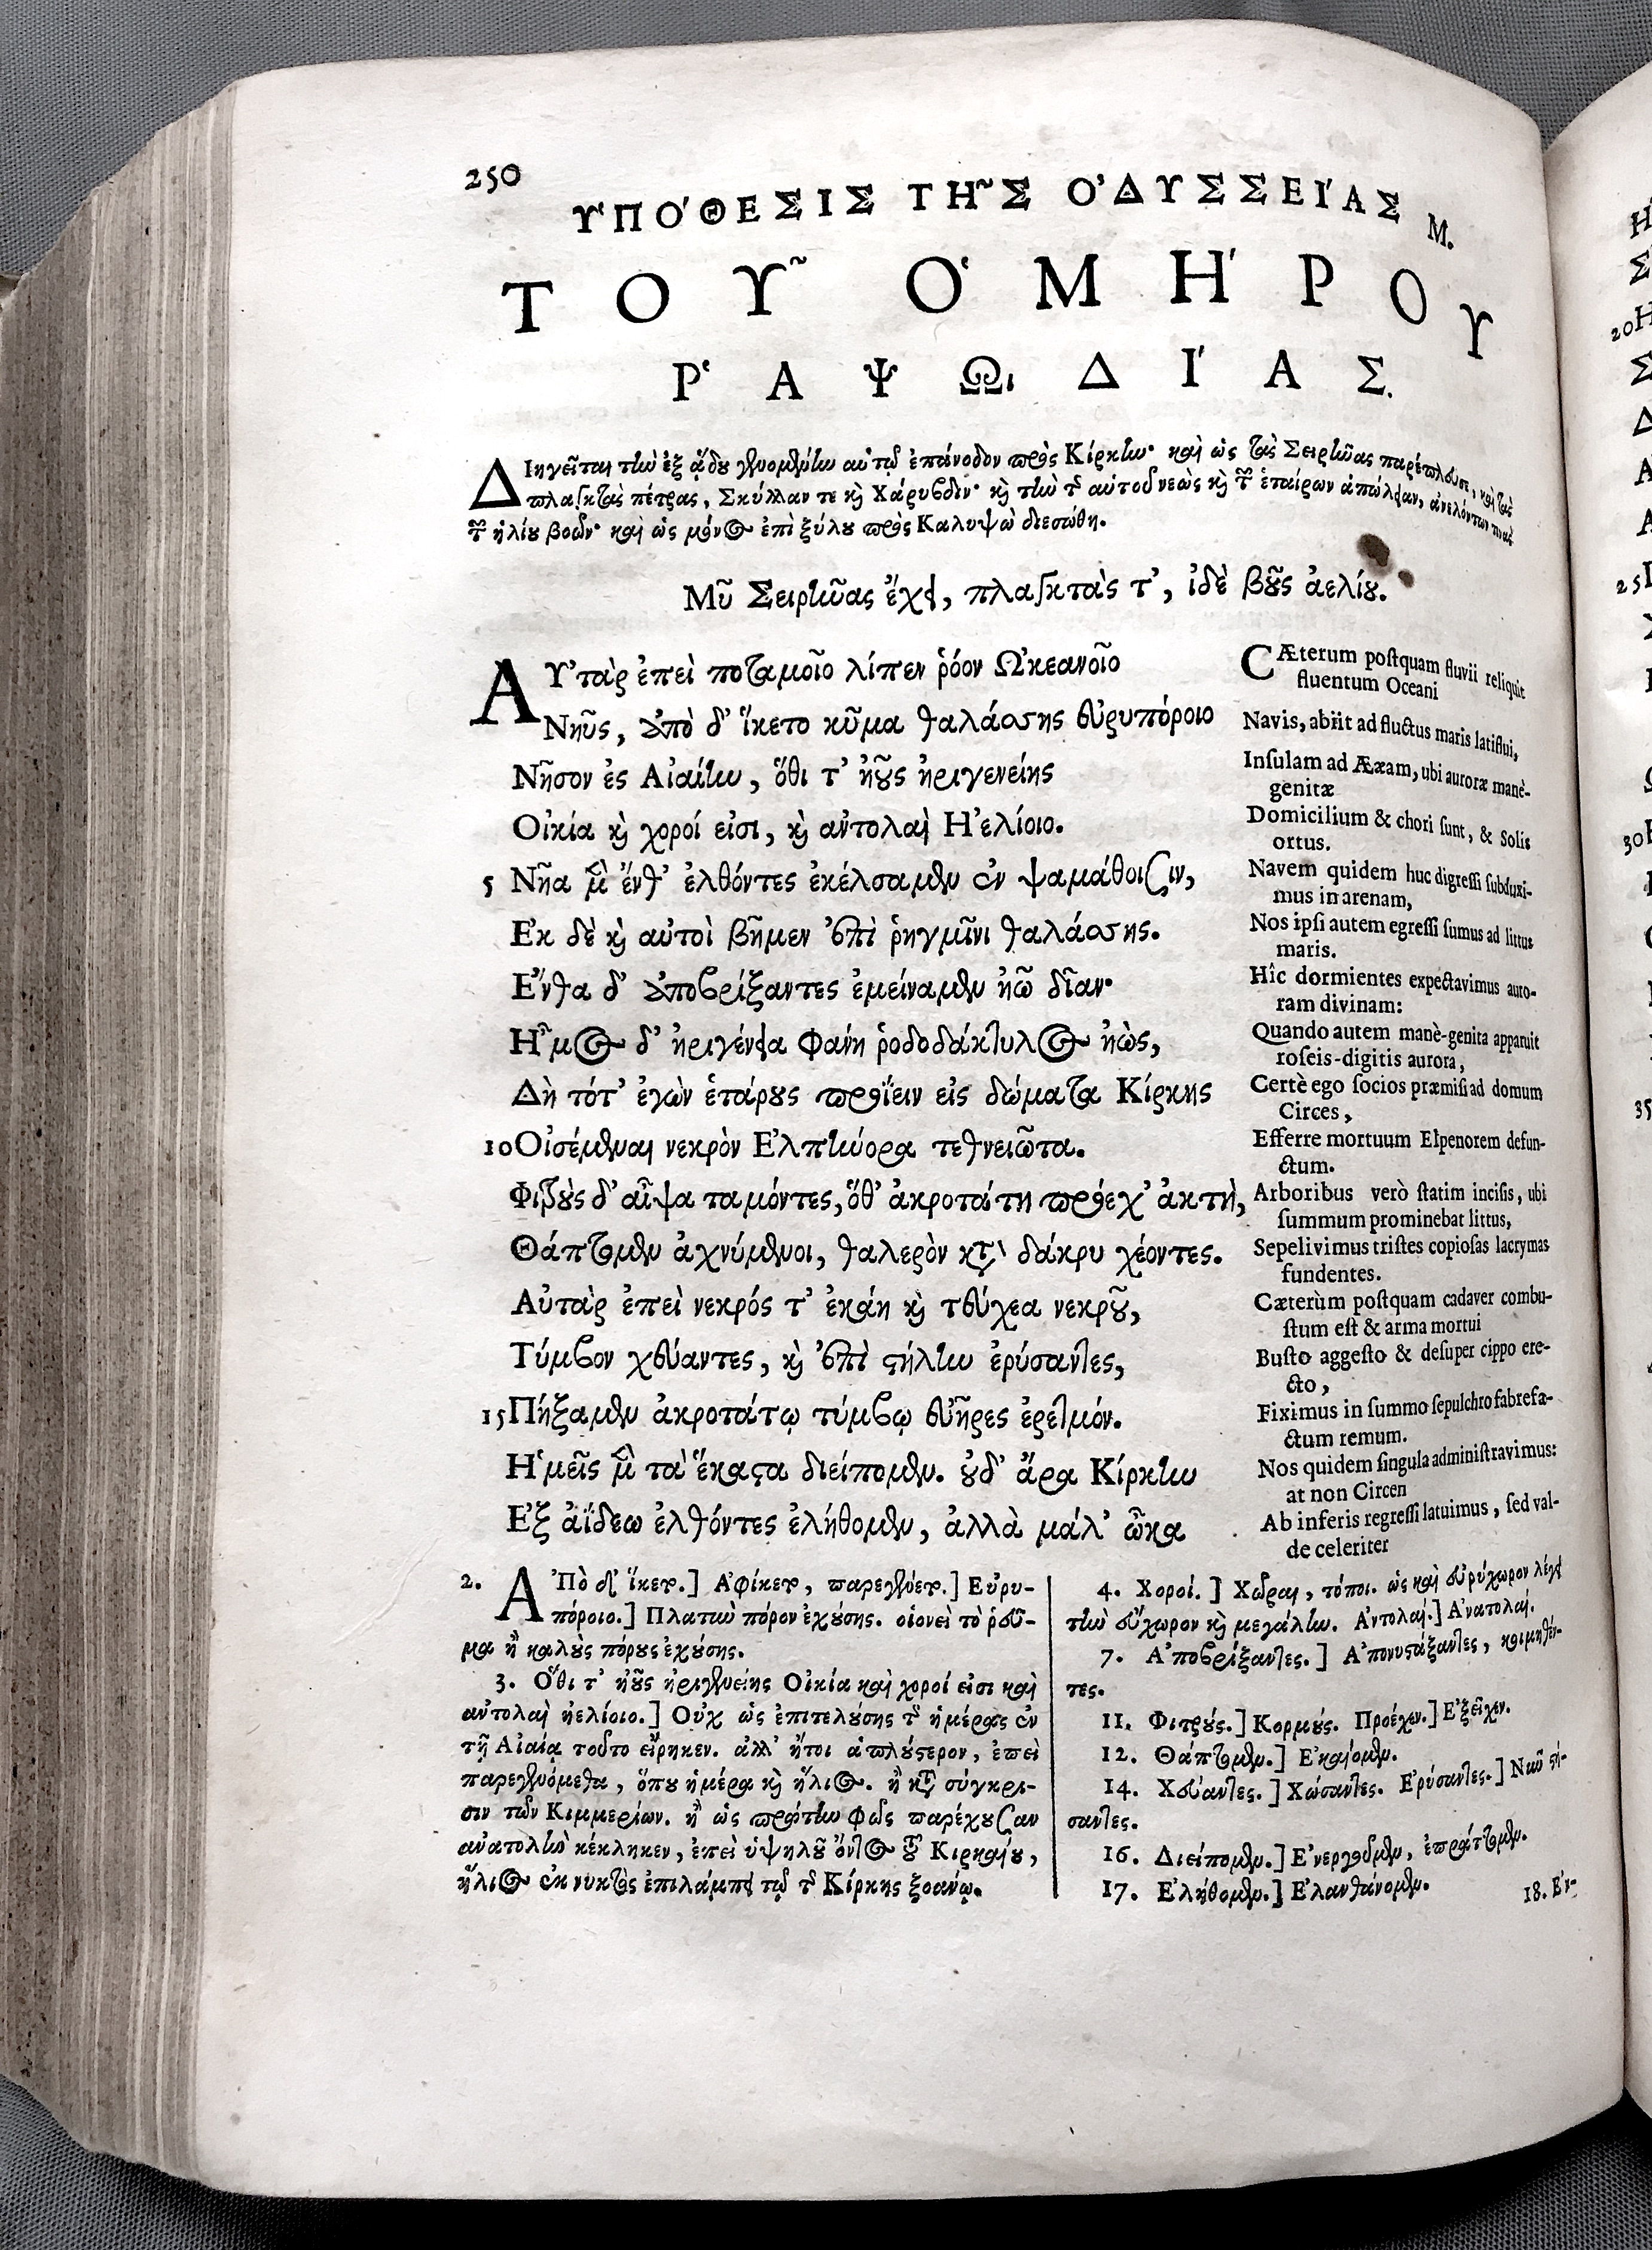 250
ΥΠΟ'ΘΕΣΙΣ ΤΗ͂Σ Ο'ΔΥΣΣΕΙ'ΑΣ Μ.
ΤΟΥ͂ Ὁ ΜΗ'ΡΟΥ
Ῥ Α Ψ Ω ι Δ Ι' Α Σ.
ΔΙηγεῖται τὴν ἐξ ᾅδου γενομένην αὐτῷ ἐπάνοδον πρὸς Κίρκην· καὶ ὡς τὰς Σειρῆνας παρέπλευσε, καὶ τὰς
πλαγκτὰς πέτρας, Σκύλλαν τε καὶ Χάρυβδιν· καὶ τὴν τῆς αὐτοῦ νεὼς καὶ τῶν ἑταίρων ἀπώλειαν, ἀνελόντων τινὰς
τῶν ἡλίου βοῶν· καὶ ὡς μόνος ἐπὶ ξύλου πρὸς Καλυψὼ διεσώθη.
Μῦ Σειρῆνας ἔχει, πλαγκτὰς τ', ἰδὲ βοῦς ἀελίου.
ΑΥ'τὰρ ἐπεὶ ποταμοῖο λίπεν ῥόον Ὠκεανοῖο
Νηῦς, ἀπὸ δ' ἵκετο κῦμα θαλάσσης εὐρυπόροιο
Νῆσον ἐς Αἰαίην, ὅθι τ' ἠοῦς ἠριγενείης
Οἰκία καὶ χοροί εἰσι, καὶ αὐτολαὶ Η'ελίοιο.
5 Νῆα μὲν ἔνθ' ἐλθόντες ἐκέλσαμεν ἐν ψαμάθοισιν,
Εκ δὲ καὶ αὐτοὶ βῆμεν ἐπὶ ῥηγμῖνι θαλάσσης.
Ε'́νθα δ' ἀποβρίξαντες ἐμείναμεν ἠῶ δῖαν·
Η῏μος δ' ἠριγένεια φάνη ῥοδοδάκτυλος ἠὼς,
Δὴ τότ' ἐγὼν ἑτάρους προΐειν εἰς δώματα Κίρκης
10 Οἰσέμεναι νεκρὸν Ε'λπήνορα τεθνειῶτα.
Φιτροὺς δ' αἶψα ταμόντες, ὅθ' ἀκροτάτη πρόεχ' ἀκτὴ,
Θάπτομεν ἀχνύμενοι, θαλερὸν κατὰ δάκρυ χέοντες.
Αὐτὰρ ἐπεὶ νεκρός τ' ἐκάη καὶ τεύχεα νεκροῦ,
Τύμβον χεύαντες, καὶ ἐπὶ στήλην ἐρύσαντες,
15 Πήξαμεν ἀκροτάτῳ τύμβῳ εὐῆρες ἐρετμόν.
Ἡμεῖς μὲν τὰ ἕκαστα διείπομεν. οὐδ' ἄρα Κίρκην
Εξ ἀΐδεω ἐλθόντες ἐλήθομεν, ἀλλὰ μάλ' ὦκα
CÆterum postquam fluvii reliquit
fluentum Oceani
Navis, abiit ad fluctus maris latiflui,
Insulam ad Ææam, ubi auroræ manè-
genitæ
Domicilium & chori sunt, & Solis
ortus.
Navem quidem huc digressi subduxi-
mus in arenam,
Nos ipsi autem egressi sumus ad littus
maris.
Hîc dormientes expectavimus auro-
ram divinam:
Quando autem manè-genita apparuit
roseis-digitis aurora,
Certè ego socios præmisi ad domum
Circes,
Efferre mortuum Elpenorem defun-
ctum.
Arboribus verò statim incisis, ubi
summum prominebat littus,
Sepelivimus tristes copiosas lacrymas
fundentes.
Cæterùm postquam cadaver combu-
stum est & arma mortui
Busto aggesto & desuper cippo ere-
cto,
Fiximus in summo sepulchro fabrefa-
ctum remum.
Nos quidem singula administravimus:
at non Circen
Ab inferis regressi latuimus, sed val-
de celeriter
2. Α'Πὸ δ' ἵκετο.] Α'φίκετο, παρεγένετο.] Εὐρυ-
πόροιο.] Πλατὺν πόρον ἐχούσης. οἱονεὶ τὸ ῥεῦ-
μα ἢ καλοὺς πόρους ἐχούσης.
3. Ὅθι τ' ἠοῦς ἠριγενείης Οἰκία καὶ χοροί εἰσι καὶ
αὐτολαὶ ἠελίοιο.] Οὐχ ὡς ἐπιτελούσης τῆς ἡμέρας ἐν
τῇ Αἰαίᾳ τοῦτο εἴρηκεν. ἀλλ' ἤτοι ἁπλούστερον, ἐπεὶ
παρεγενόμεθα, ὅπου ἡμέρα καὶ ἥλιος. ἢ κατὰ σύγκρι-
σιν τῶν Κιμμερίων. ἢ ὡς πρώτην φῶς παρέχουσαν
ἀνατολὴν κέκληκεν, ἐπεὶ ὑψηλοῦ ὄντος τοῦ Κιρκαίου,
ἥλιος ἐκ νυκτὸς ἐπιλάμπει τῷ τῆς Κίρκης ξοάνῳ.
4. Χοροί.] Χῶραι, τόποι. ὡς καὶ εὐρύχωρον λέγει
τὴν εὔχωρον καὶ μεγάλην. Α'ντολαί.] Α'νατολαί.
7. Α'ποβρίξαντες.] Α'πονυστάξαντες, κοιμηθέν-
τες.
11. Φιτρούς.] Κορμούς. Προέχεν.] Ε'ξεῖχεν.
12. Θάπτομεν.] Ε'καίομεν.
14. Χεύαντες.] Χώσαντες. Ε'ρύσαντες.]
σαντες.
16. Διείπομεν.] Ε'νεργοῦμεν, ἐπράττομεν.
17. Ε'λήθομεν.] Ε'λανθάνομεν.
18. Ε'ν-